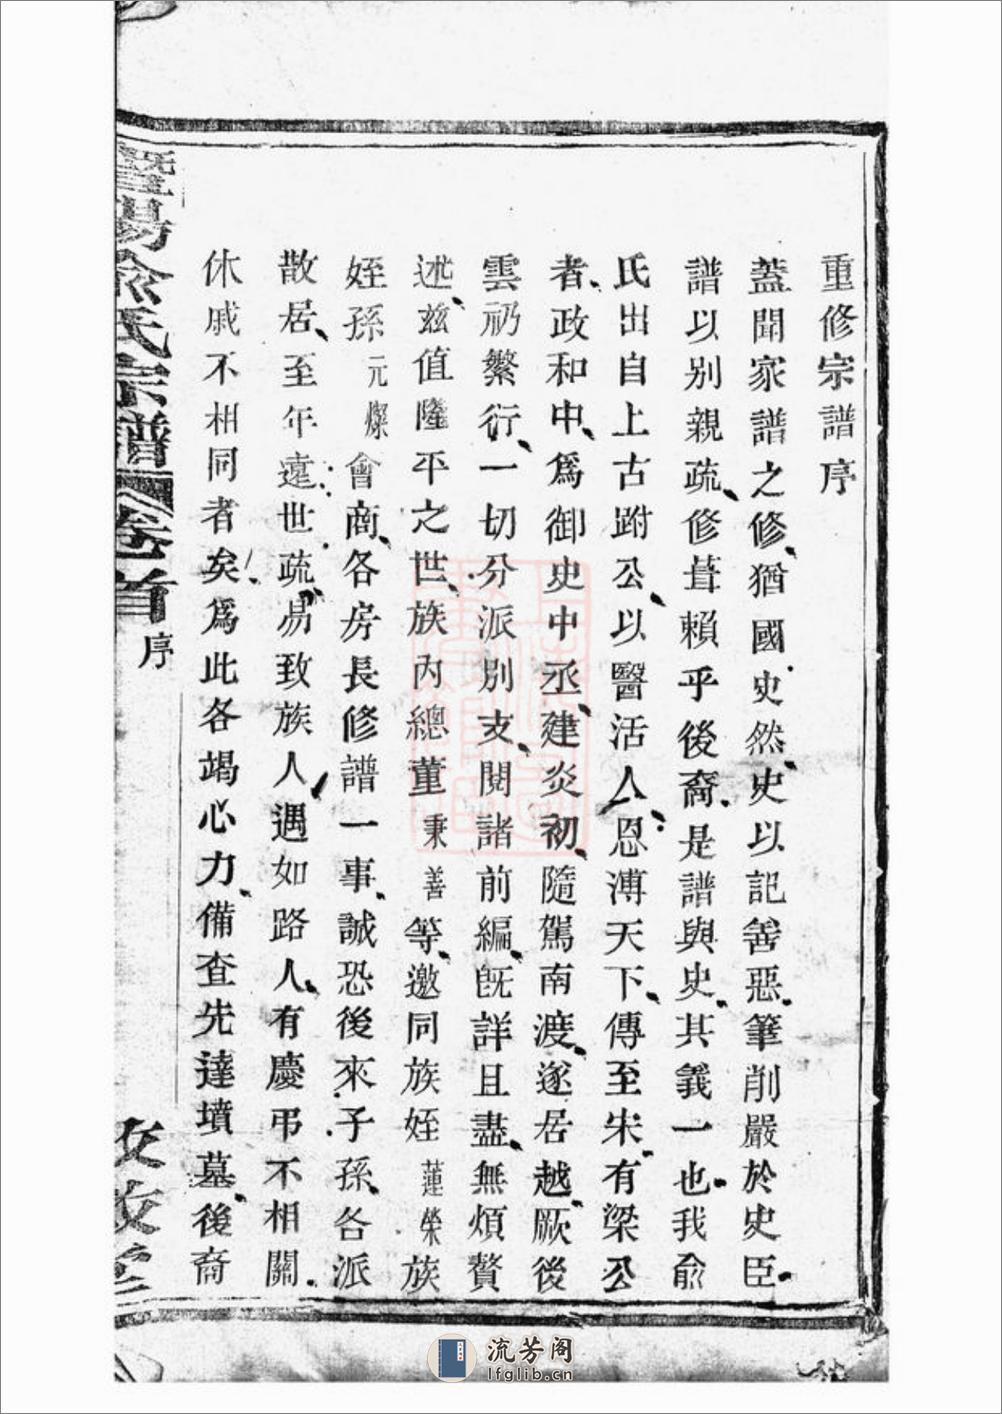 重修宗譜序
蓋聞家譜之修、猶國史然、史以記善惡、筆削嚴於史臣、
譜以別親疏、修葺賴乎後裔、是譜與史、其義一也、我俞
氏出自上古跗公、以醫活人、恩溥天下、傳至宋、有梁公
者、政和中、為御史中丞、建炎初、隨駕南渡、遂居越、厥後
雲礽繁衍、一切分派別支、閱諸前編、旣詳且盡、無煩贅
述、茲值隆平之世、族內總董秉善等、邀同族姪蓮榮族
姪孫元燦會商、各房長修譜一事、誠恐後來子孫、各派
散居、至年遠世疏、易致族人遇如路人、有慶弔不相關、
休戚不相同者矣、為此各竭心力、備查先達墳墓、後裔
暨陽俞氏宗譜 卷首 序
流芳阁
lfglib.cn